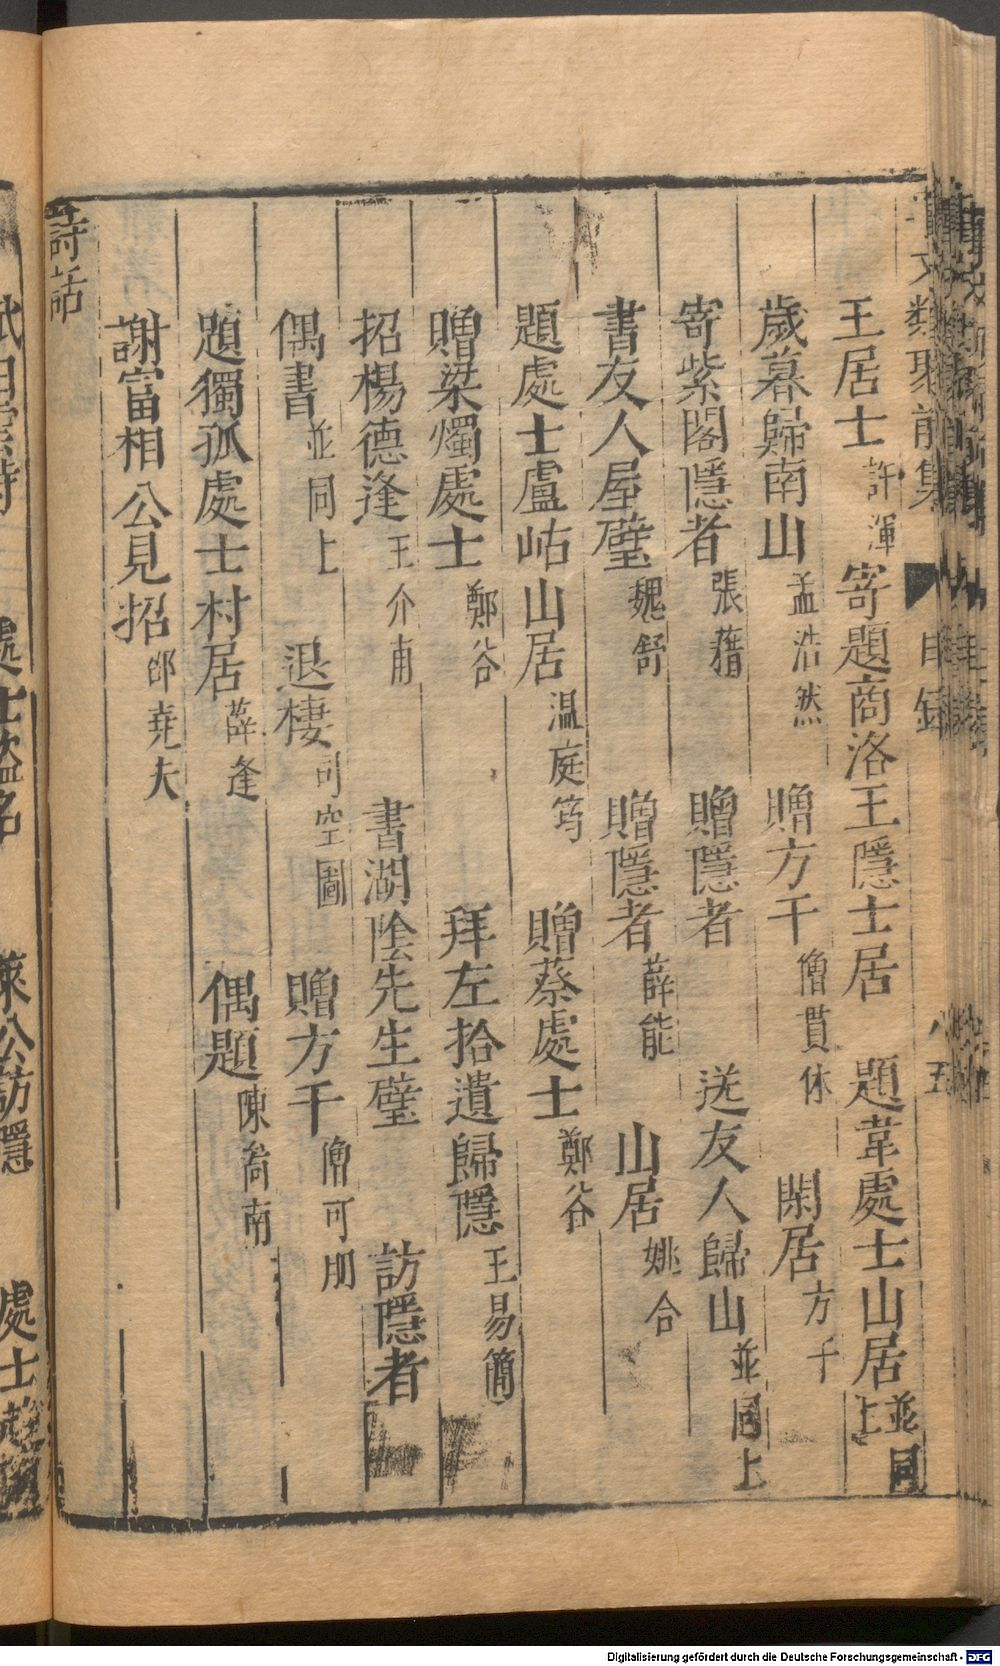 事文類聚前集 目録 八五
王居士 許渾 寄題商洛王隱士居 題韋處士山居 並同上
歲暮歸南山 孟浩然 贈方干 僧貫休 閑居 方干
寄紫閣隱者 張籍 贈隱者 送友人歸山 並同上
書友人屋壁 魏舒 贈隱者 薛能 山居 姚合
題處士盧岵山居 温庭筠 贈蔡處士 鄭谷
贈梁燭處士 鄭谷 拜左拾遺歸隱 王易簡
招楊德逢 王介甫 書湖陰先生壁 訪隱者
偶書 並同上 退棲 司空圖 贈方干 僧可朋
題獨孤處士村居 薛逢 偶題 陳喬南
謝富相公見招 邵堯夫
詩話
處士盜名 萊公訪隱 處士
Digitalisierung gefördert durch die Deutsche Forschungsgemeinschaft - DFG